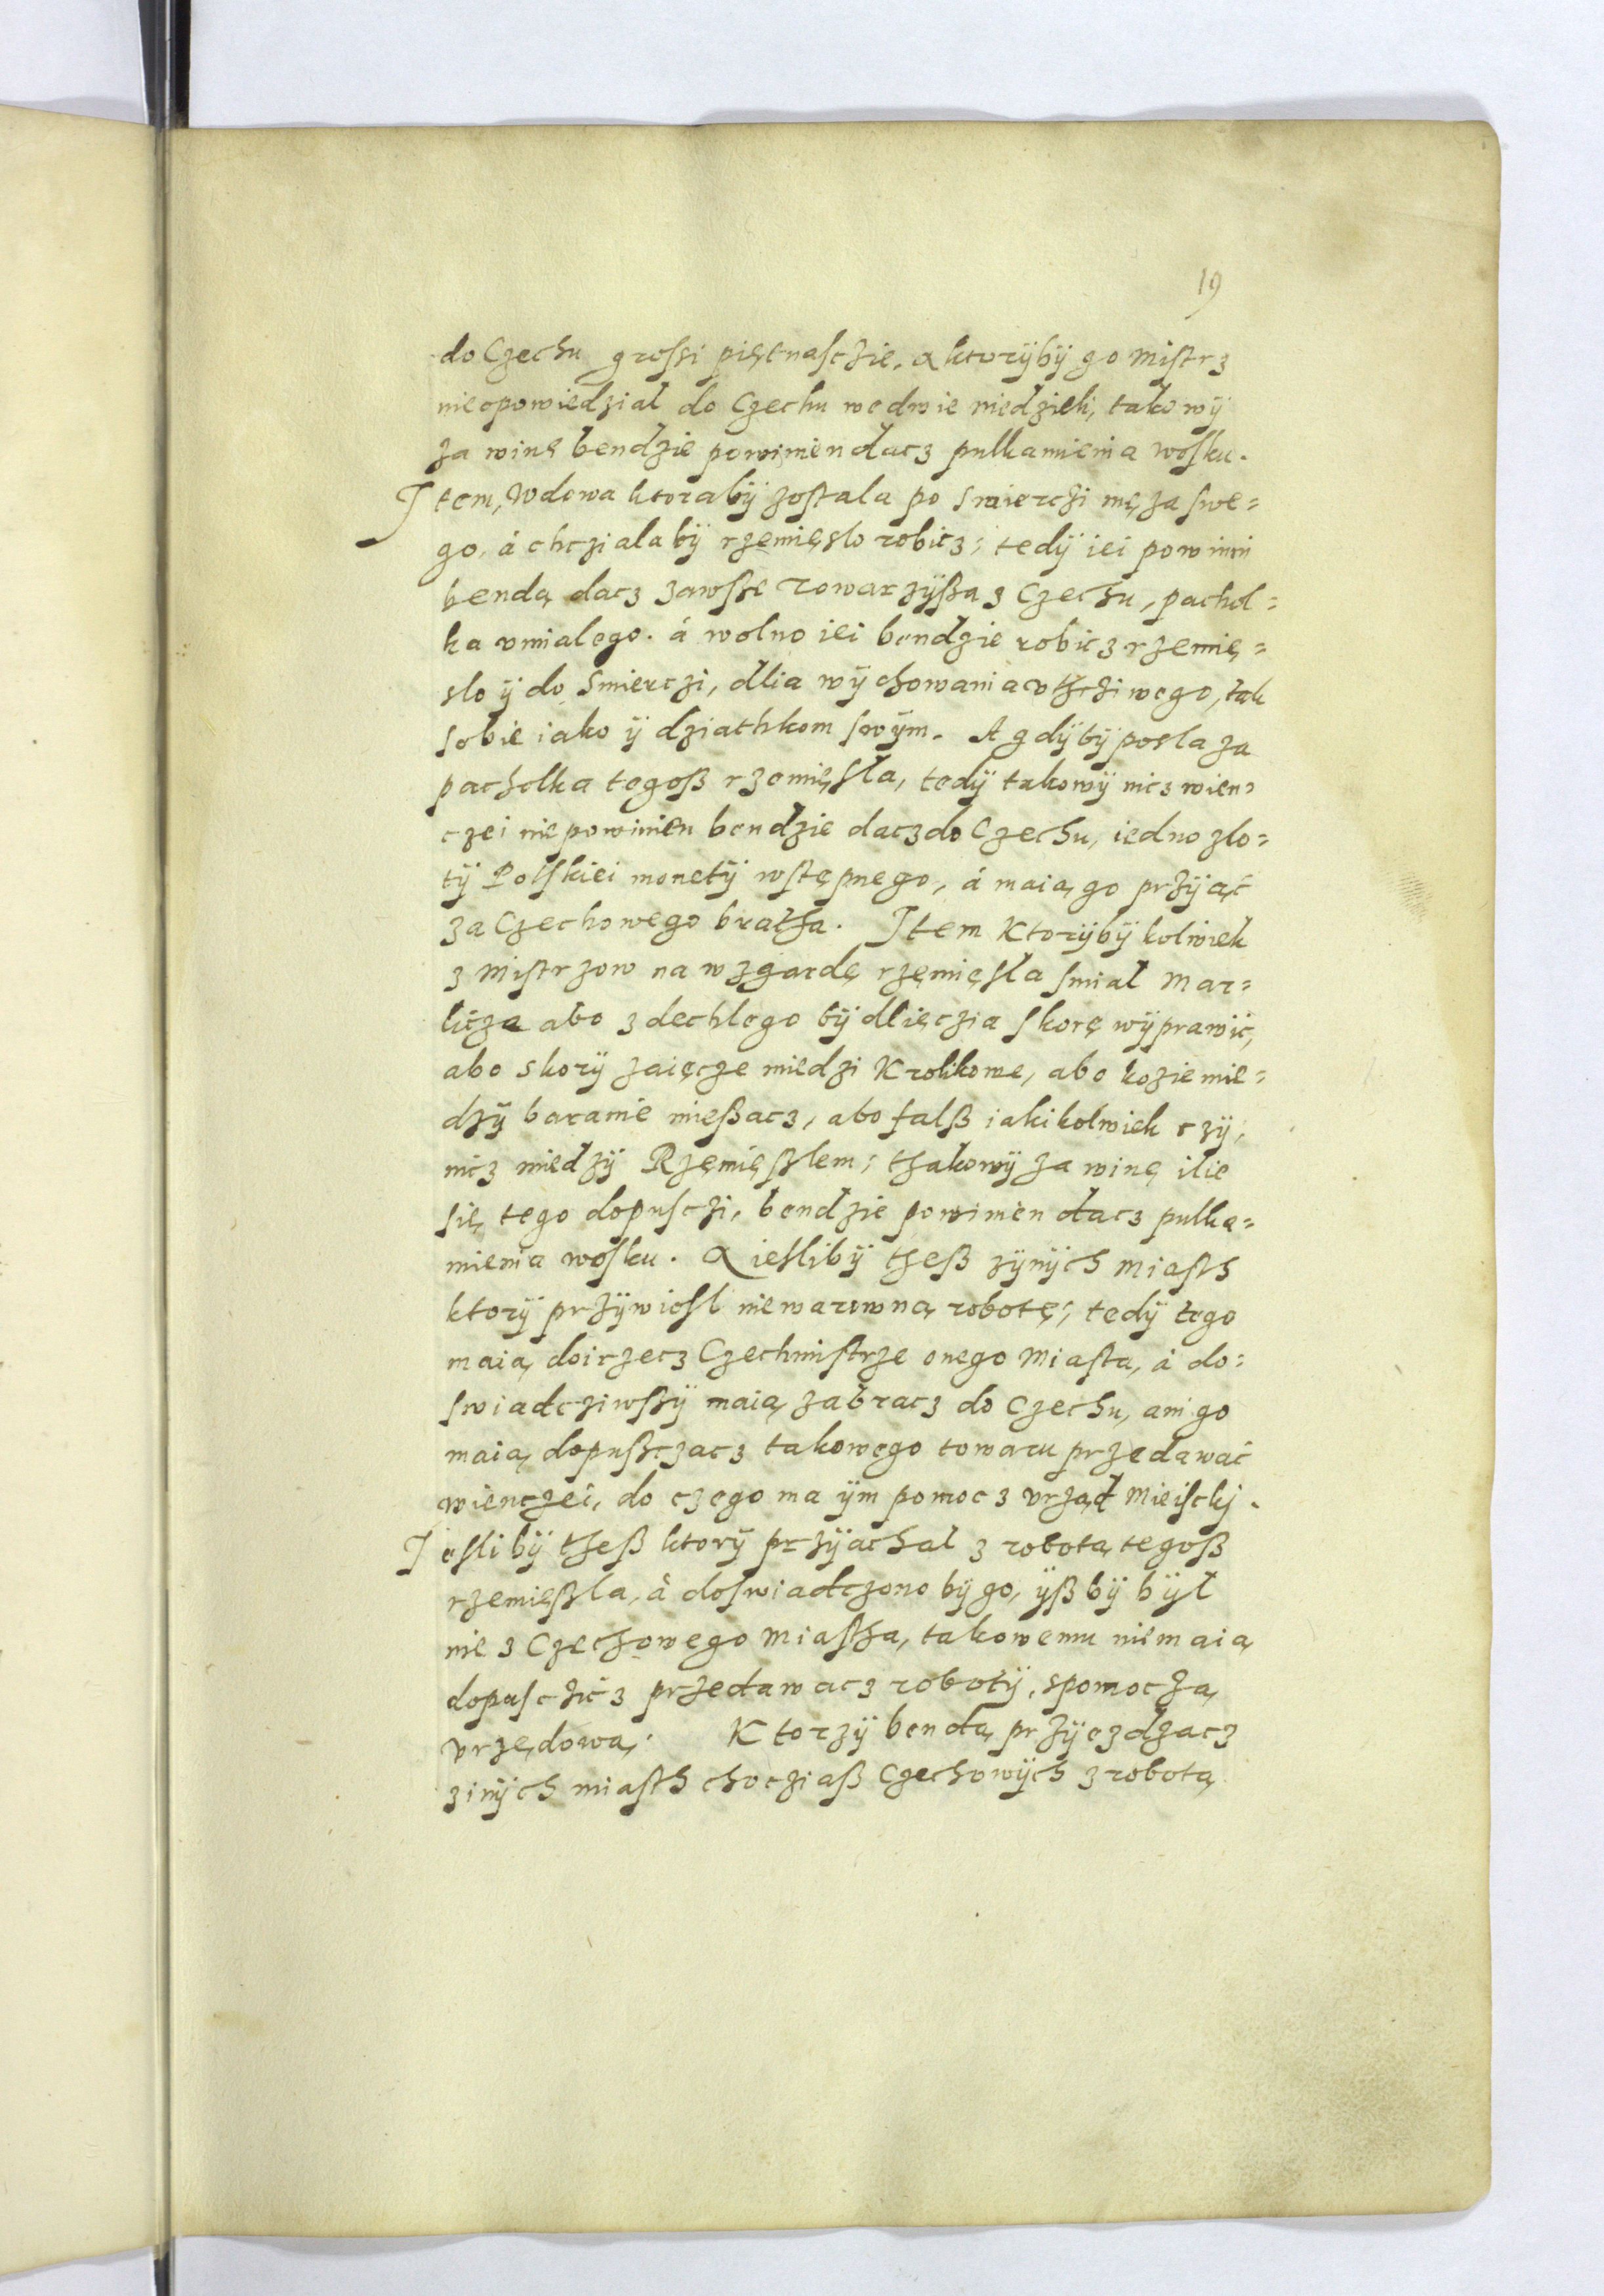 19
do Czechu grossi pięcnasczie. A ktorÿbÿ go Mistrz
nieopowiedzial do Czechu wedwie niedzieli, takowÿ
za winę bendzie powinien dacz pulkamienia wosku.
Item, Wdowa ktorabÿ zostala po smierczi męza swe=
go, á chczialabÿ rzemięslo robicz; tedÿ iei powinni
bendą dacz zawsse Towarzÿßa z Czechu, pachol=
ka umialego. á wolno iei bendzie robicz rzemię=
slo ÿ do smierczi, dlia wÿchowania vthcziwego, tak
sobie iako ÿ dziathkom swÿm. A gdÿbÿ posla za
pacholka tegoß rzemięsla, tedÿ takowÿ nicz wien=
czei niepowinien bendzie dacz do Czechu, iedno zlo=
tÿ Polskiei monetÿ wstępnego, á maią go przÿąć
za Czechowego bratha. Item Ktorÿbÿ kolwiek
z Mistrzow na wzgardę rzęmięsla smial Mar=
licza abo zdechlego bÿdlięczia skorę wÿprawić,
abo skorÿ zaięcze miedzi Krolikowe, abo kozie mie=
dzÿ baranie mießacz, abo falß iakikolwiek czÿ,
nicz miedzÿ Rzęmięszlem; thakowÿ za winę ilie
się tego dopusczi, bendzie powinien dacz pulka=
mienia wosku. A iesslibÿ theß zÿnÿch Miasth
ktorÿ przÿwiosl niewarowną robotę; tedÿ tego
maią doirzecz Czechmistrze onego Miasta, á do=
swiadcziwssÿ maią zabracz do Czechu, ani go
maią dopußczacz takowego towaru przedawać
wienczei, do czego ma ÿm pomocz vrząd Mieiscki.
Ieslibÿ theß ktorÿ przÿachal z robotą tegoß
rzemięszla, á doswiadczonobÿ go, ÿßbÿ bÿl
nie z Czechowego Miastha, takowemu niemaią
dopusczicz przedawacz robotÿ, spomoczą
vrzędową. Ktorzÿ bendą przÿezdzacz
zinÿch miasth chocziaß Czechowÿch z robotą